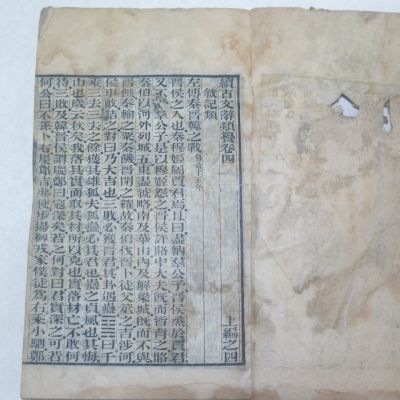 續古文辭類纂卷四
上編之四
敘記類
左傳秦晉韓之戰 僖公十五年
晉侯之入也秦穆姬屬賈君焉且曰盡納羣公子晉侯烝於賈君
又不納羣公子是以穆姬怨之晉侯許賂中大夫既而皆背之賂
秦伯以河外列城五東盡虢略南及華山內及解梁城既而不與
晉饑秦輸之粟秦饑晉閉之糴故秦伯伐晉卜徒父筮之吉涉河
侯車敗詰之對曰乃大吉也三敗必獲晉君其卦遇蠱䷑曰千
乘三去三去之餘獲其雄狐夫狐蠱必其君也蠱之貞風也其悔
山也歲云秋矣我落其實而取其材所以克也實落材亡不敗何
待三敗及韓晉侯謂慶鄭曰寇深矣若之何對曰君實深之可若
何公曰不孫卜右慶鄭吉弗使步揚御戎家僕徒為右乘小駟鄭